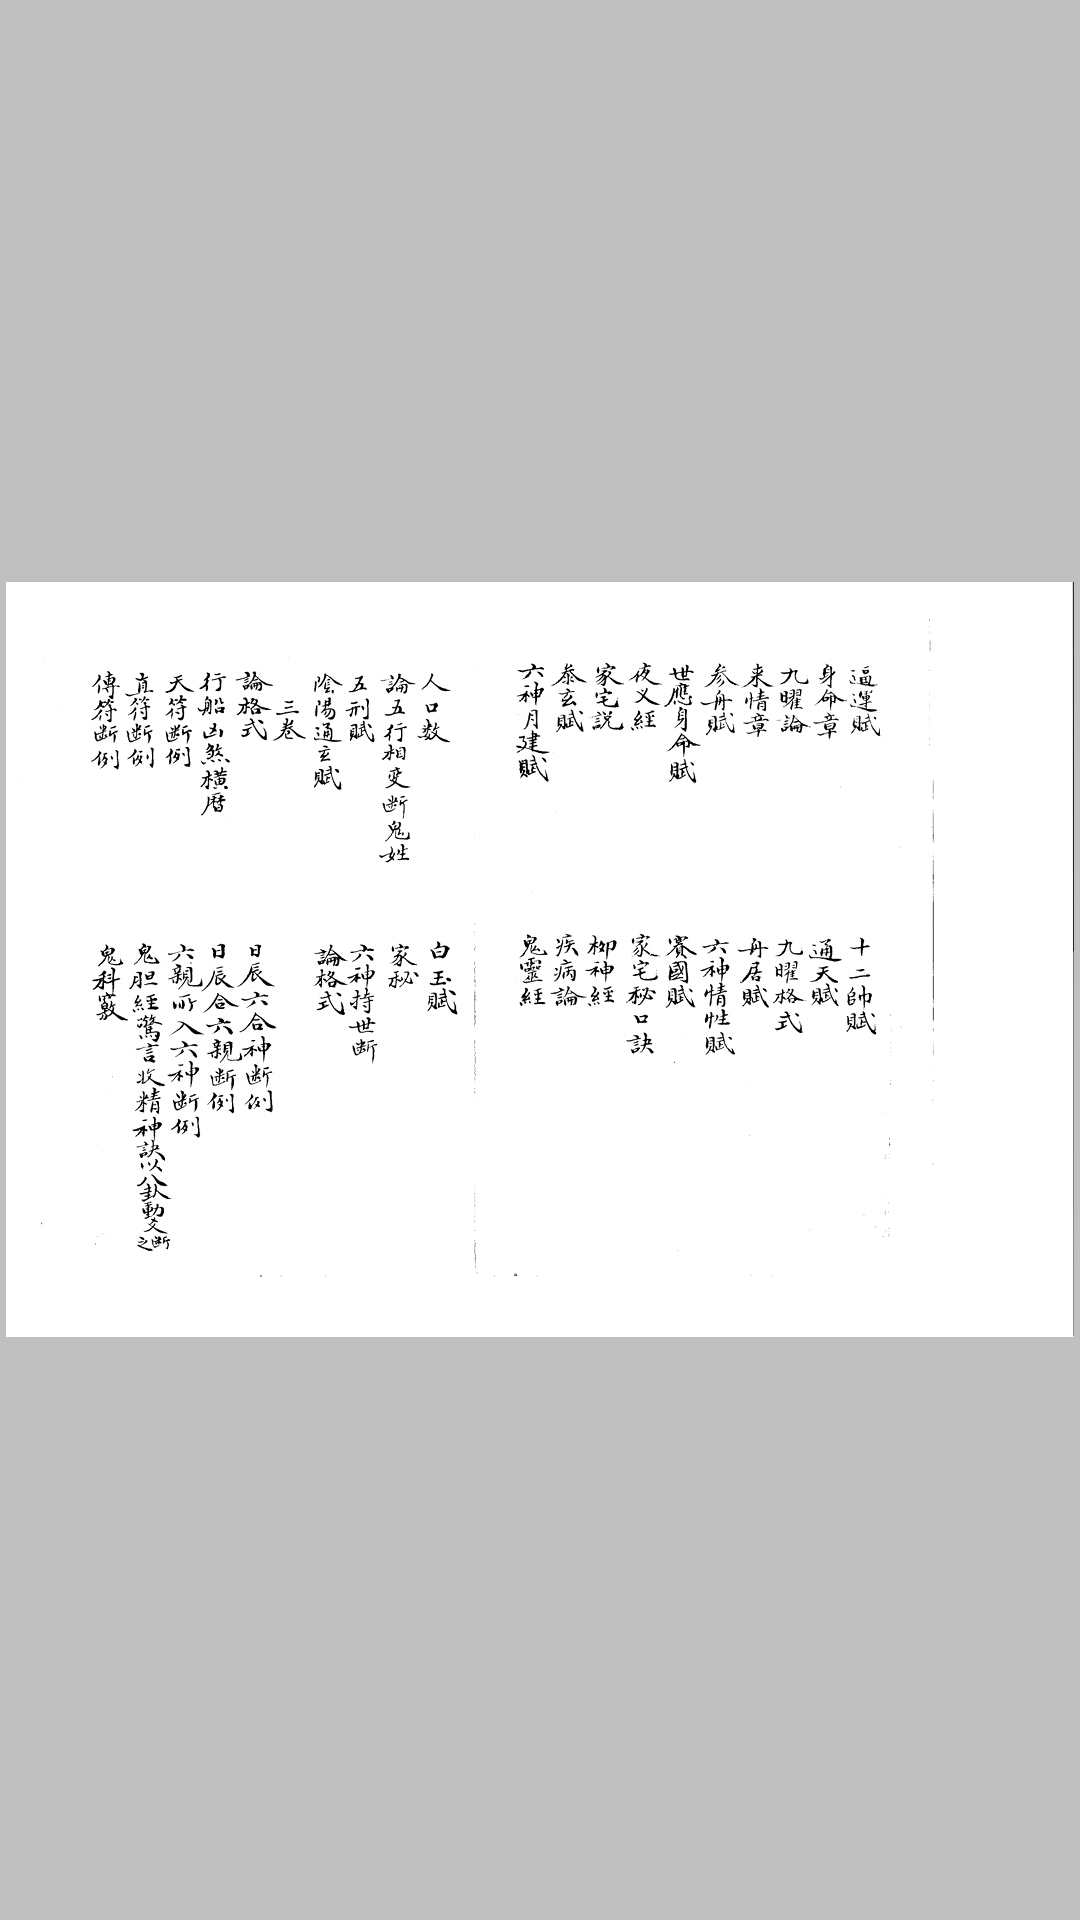 逼運賦
十二帥賦
身命章
通天賦
九曜論
九曜格式
来情章
舟居賦
参舟賦
六神情性賦
世應身命賦
賽國賦
夜义經
家宅秘口訣
家宅説
柳神經
泰玄賦
疾病論
六神月建賦
鬼靈経
人口数
白玉賦
論五行相变断鬼姓
家秘
五刑賦
六神持世断
陰陽通玄賦
論格式
三巻
論格式
日辰六合神断例
行船凶煞横暦
日辰合六親断例
天符断例
六親所入六神断例
直符断例
鬼胆経驚言收精神訣以八卦動爻断之
傳符断例
鬼科竅